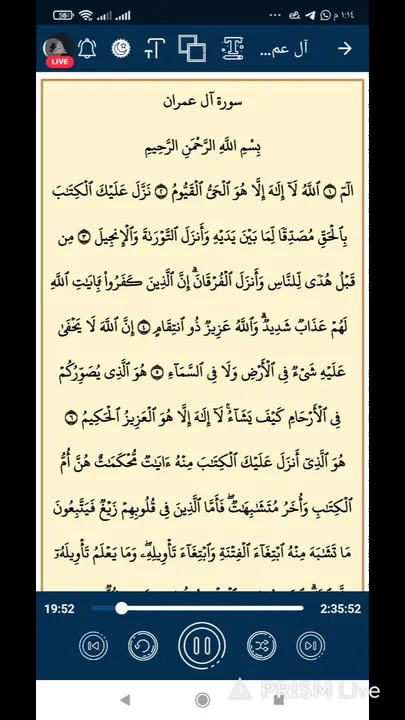 ١:١٤ م
56
آل عم...
LIVE
سورة آل عمران
بِسْمِ اللَّهِ الرَّحْمَنِ الرَّحِيمِ
الٓمٓ ١ ٱللَّهُ لَآ إِلَٰهَ إِلَّا هُوَ ٱلْحَىُّ ٱلْقَيُّومُ ٢ نَزَّلَ عَلَيْكَ ٱلْكِتَٰبَ
بِٱلْحَقِّ مُصَدِّقًا لِّمَا بَيْنَ يَدَيْهِ وَأَنزَلَ ٱلتَّوْرَىٰةَ وَٱلْإِنجِيلَ ٣ مِن
قَبْلُ هُدًى لِّلنَّاسِ وَأَنزَلَ ٱلْفُرْقَانَ ۗ إِنَّ ٱلَّذِينَ كَفَرُوا۟ بِـَٔايَٰتِ ٱللَّهِ
لَهُمْ عَذَابٌ شَدِيدٌ ۗ وَٱللَّهُ عَزِيزٌ ذُو ٱنتِقَامٍ ٤ إِنَّ ٱللَّهَ لَا يَخْفَىٰ
عَلَيْهِ شَىْءٌ فِى ٱلْأَرْضِ وَلَا فِى ٱلسَّمَآءِ ٥ هُوَ ٱلَّذِى يُصَوِّرُكُمْ
فِى ٱلْأَرْحَامِ كَيْفَ يَشَآءُ ۚ لَآ إِلَٰهَ إِلَّا هُوَ ٱلْعَزِيزُ ٱلْحَكِيمُ ٦
هُوَ ٱلَّذِىٓ أَنزَلَ عَلَيْكَ ٱلْكِتَٰبَ مِنْهُ ءَايَٰتٌ مُّحْكَمَٰتٌ هُنَّ أُمُّ
ٱلْكِتَٰبِ وَأُخَرُ مُتَشَٰبِهَٰتٌ ۖ فَأَمَّا ٱلَّذِينَ فِى قُلُوبِهِمْ زَيْغٌ فَيَتَّبِعُونَ
مَا تَشَٰبَهَ مِنْهُ ٱبْتِغَآءَ ٱلْفِتْنَةِ وَٱبْتِغَآءَ تَأْوِيلِهِۦ ۗ وَمَا يَعْلَمُ تَأْوِيلَهُۥٓ
19:52
2:35:52
PRISM Live